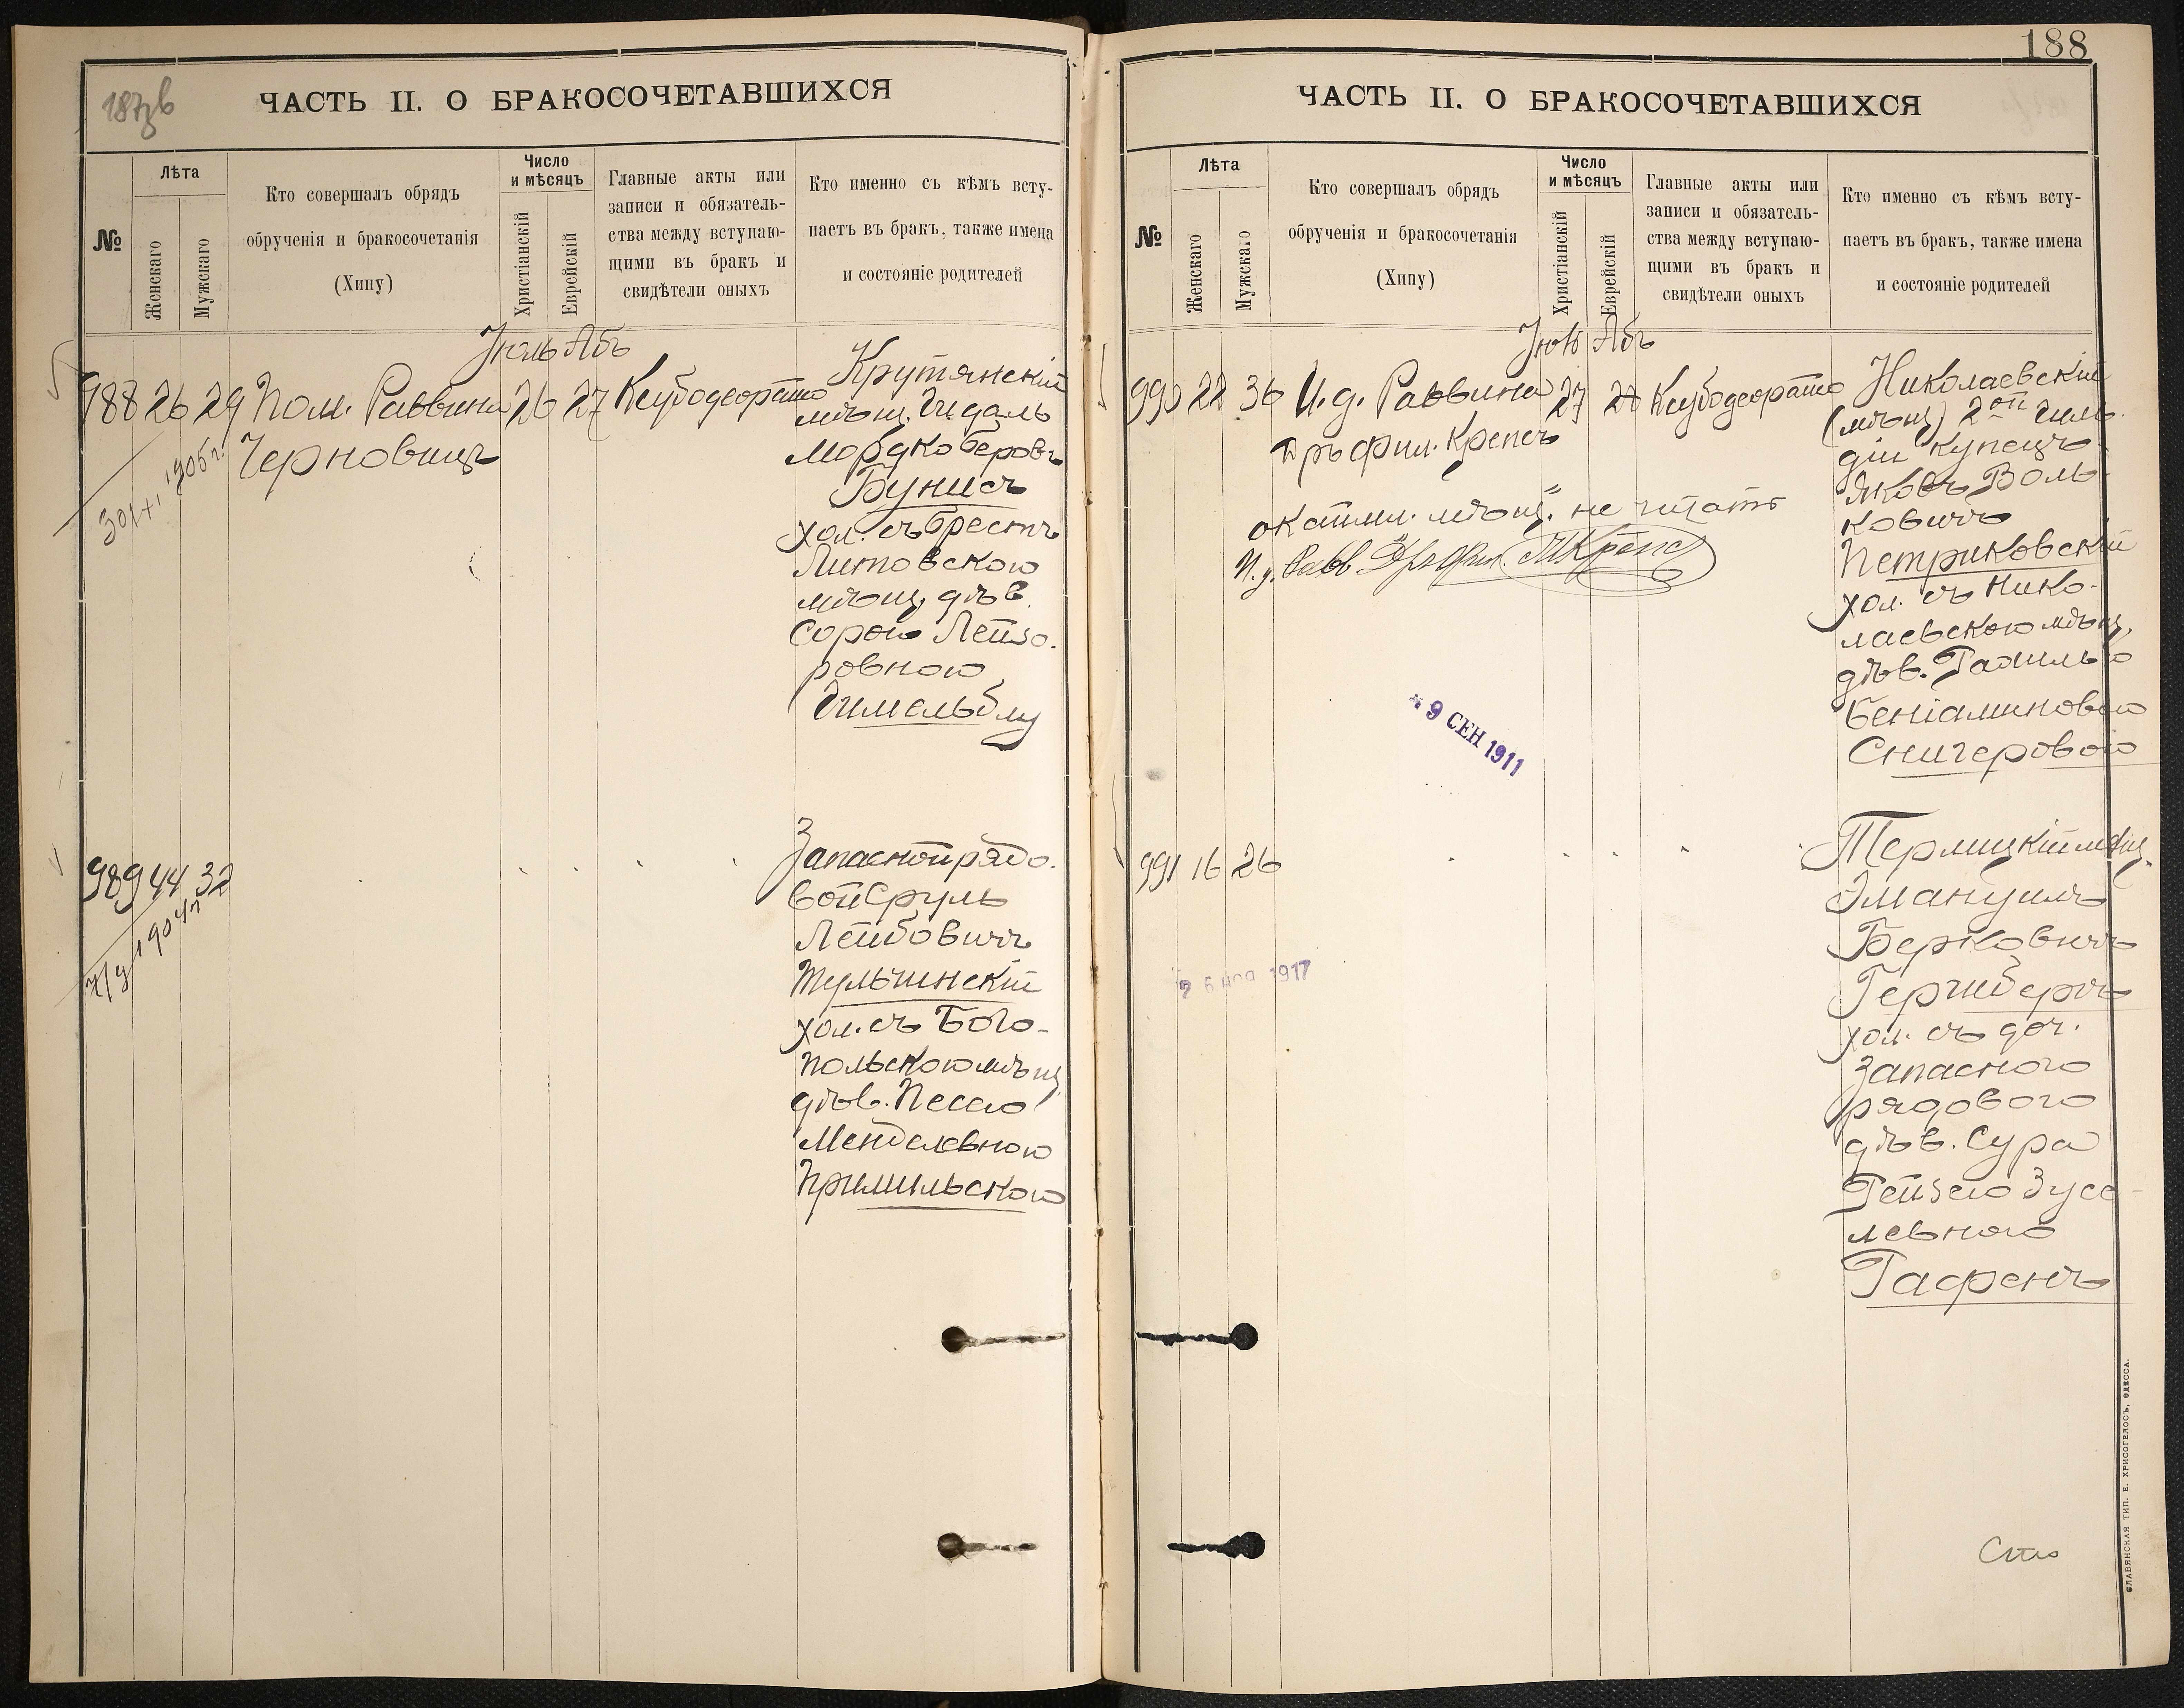 187зв
ЧАСТЬ II. О БРАКОСОЧЕТАВШИХСЯ
№
Лѣта
Женскаго
Мужскаго
Кто совершалъ обрядъ
обрученія и бракосочетанія
(Хипу)
Число
и мѣсяцъ
Христіанскій
Еврейскій
Главные акты или
записи и обязатель-
ства между вступаю-
щими въ бракъ и
свидѣтели оныхъ
Кто именно съ кѣмъ всту-
паетъ въ бракъ, также имена
и состояніе родителей
Іюль Абъ
988 26 29 Пом. Раввина 26 27
Черновицъ
1905 г.
Крутянскій
мѣщ. Гидаль
Мордко Беровъ
Бунисъ
хол. съ Брестъ
Литовскою
мѣщ. дѣв.
Сорою Лейзо-
ровною
Гимельблу
989 44 32
1904 г
Запасной рядо-
вой Сруль
Лейбовичъ
Тульчинскій
хол. съ Бого-
польскою мѣщ.
дѣв. Песею
Менделевною
Примильскою
188
ЧАСТЬ II. О БРАКОСОЧЕТАВШИХСЯ
№
Лѣта
Женскаго
Мужскаго
Кто совершалъ обрядъ
обрученія и бракосочетанія
(Хипу)
Число
и мѣсяцъ
Христіанскій
Еврейскій
Главные акты или
записи и обязатель-
ства между вступаю-
щими въ бракъ и
свидѣтели оныхъ
Кто именно съ кѣмъ всту-
паетъ въ бракъ, также имена
и состояніе родителей
Абъ
990 22 36 И. д. Раввина 27 28
Дръ фил. Крепсъ
мѣщ." не читать
И. д. Равв Дръ фил. Крепсъ
9 СЕН 1911
Николаевскій
(мѣщ) 2ой гиль-
діи купецъ
Яковъ Воль-
ковичъ
Петриковскій
хол. съ Нико-
лаевскою мѣщ.
дѣв. Рахилью
Беніаминовою
Снигеровою
991 16 26
1917
мѣщ.
Эмануилъ
Берковичъ
Герцбергъ
хол. съ доч.
запасного
рядового
дѣв. Сура
Рейзею Зусе-
левною
Гафенъ
СЛАВЯНСКАЯ ТИП. Е. ХРИСОГЕЛОСЪ, ОДЕССА.